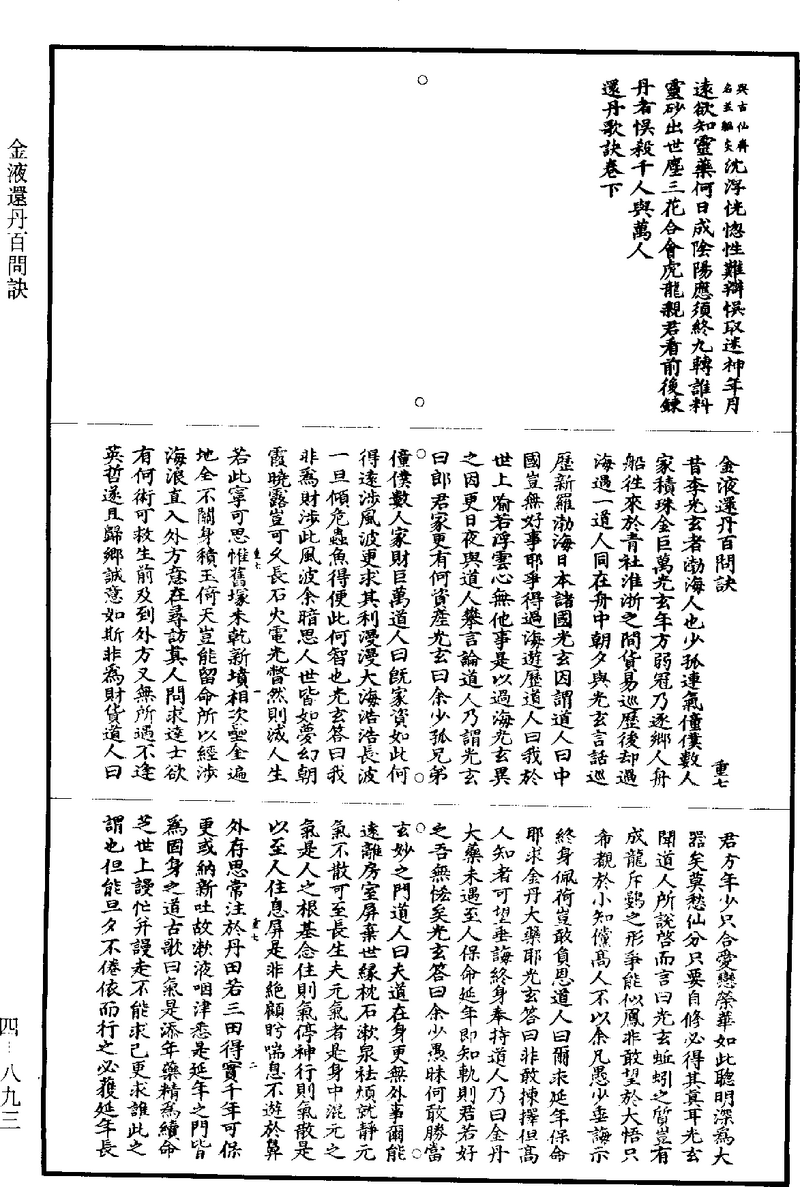 與古仙齊
名並軀矣沈浮恍惚性難辯悞取迷神年月
遠欲知靈藥何日成陰陽應須終九轉誰料
靈砂出世塵三花合會虎龍親君看前後鍊
丹者悞殺千人與萬人
還丹歌訣卷下
金液還丹百問訣
重七
昔李光玄者渤海人也少孤連氣僮僕數人
家積珠金巨萬光玄年方弱冠乃逐鄉人舟
船往來於青社淮浙之間貨易巡歷後却過
海遇一道人同在舟中朝夕與光玄言話巡
歷新羅渤海日本諸國光玄因謂道人曰中
國豈無好事耶爭得過海遊歷道人曰我於
世上喻若浮雲心無他事是以過海光玄異
之因更日夜與道人攀言論道人乃謂光玄
曰郎君家更有何資產光玄曰余少孤兄弟
僮僕數人家財巨萬道人曰旣家資如此何
得遠涉風波更求其利漫漫大海浩浩長波
一旦傾危蟲魚得便此何智也光玄答曰我
非爲財涉此風波余暗思人世皆如夢幻朝
霞曉露豈可久長石火電光瞥然則滅人生
重七
一
若此寧可思惟舊塚未乾新墳相次堊全遍
地全不關身積玉倚天豈能留命所以經涉
海浪直入外方意在尋訪真人問求達士欲
有何術可救生前及到外方又無所遇不逢
英哲遂且歸鄉誠意如斯非爲財貨道人曰
君方年少只合愛戀榮華如此聰明深爲大
器矣莫愁仙分只要自修必得其真耳光玄
聞道人所說啓而言曰光玄蚯蚓之質豈有
成龍斥鷃之形爭能似鳳非敢望於大悟只
希覩於小知儻髙人不以余凡愚少垂誨示
終身佩荷豈敢負恩道人曰爾求延年保命
耶求金丹大藥耶光玄答曰非敢揀擇但髙
人知者可望垂誨終身奉持道人乃曰金丹
大藥未遇至人保命延年即知軌則君若好
之吾無恡矣光玄答曰余少愚昧何敢勝當
玄妙之門道人曰夫道在身更無外事爾能
遠離房室屏棄世緣枕石漱泉袪煩就靜元
氣不散可至長生夫元氣者是身中混元之
氣是人之根基念住則氣停神行則氣散是
以至人住息屏是非絕顧盻喘息不遊於鼻
重七
二
外存思常注於丹田若三田得實千年可保
更或納新吐故漱液咽津悉是延年之門皆
爲固身之道古歌曰氣是添年藥精爲續命
芝世上謾忙并謾走不能求己更求誰此之
謂也但能旦夕不倦依而行之必獲延年長
金液還丹百問訣
四‥八九三